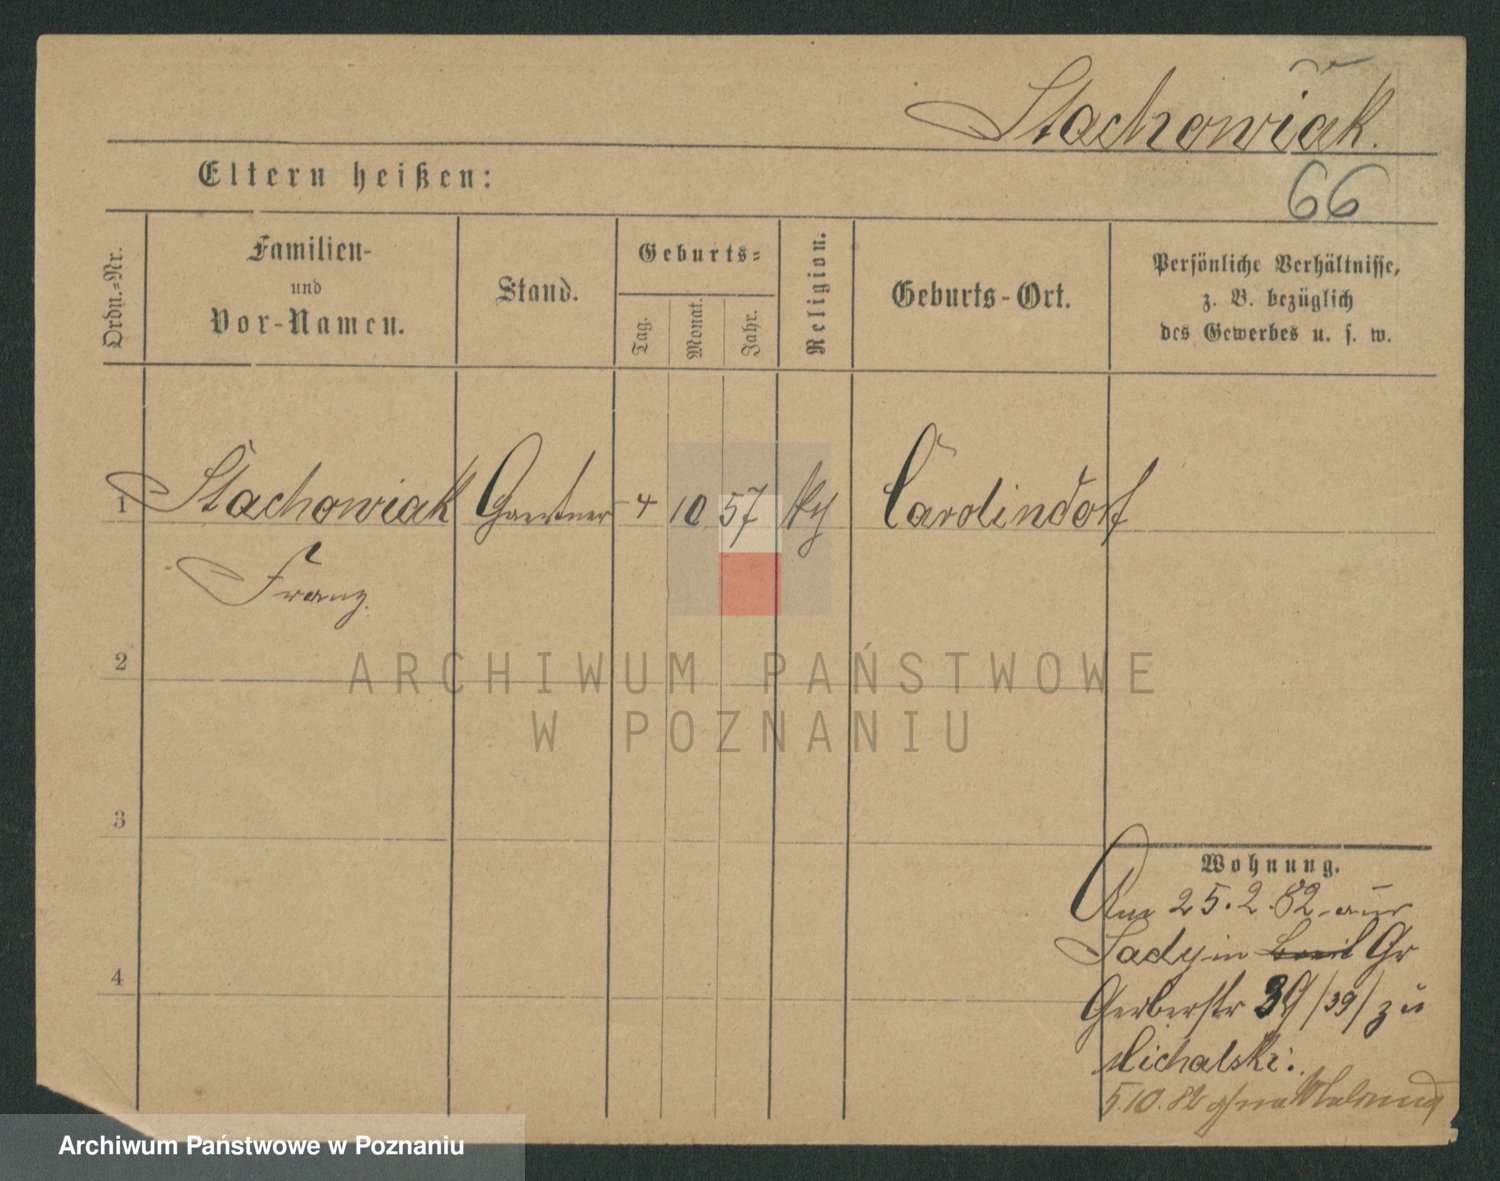 Stachowiak.
66
Eltern heißen:
Ordn.-Nr.
Familien-
und
Vor-Namen.
Stand.
Geburts-
Tag.
Monat.
Jahr.
Religion.
Geburts-Ort.
Persönliche Verhältnisse,
z. B. bezüglich
des Gewerbes u. s. w.
1 Stachowiak Gaertner 4 10 57 Carolindorf
Franz.
2
ARCHIWUM PAŃSTWOWE
W POZNANIU
3
Wohnung.
Am 25.2.82 aus
Sady in Gr
4
Gerberstr 39 /39/ zu
Michalski.
5.10.82 ohne
Archiwum Państwowe w Poznaniu